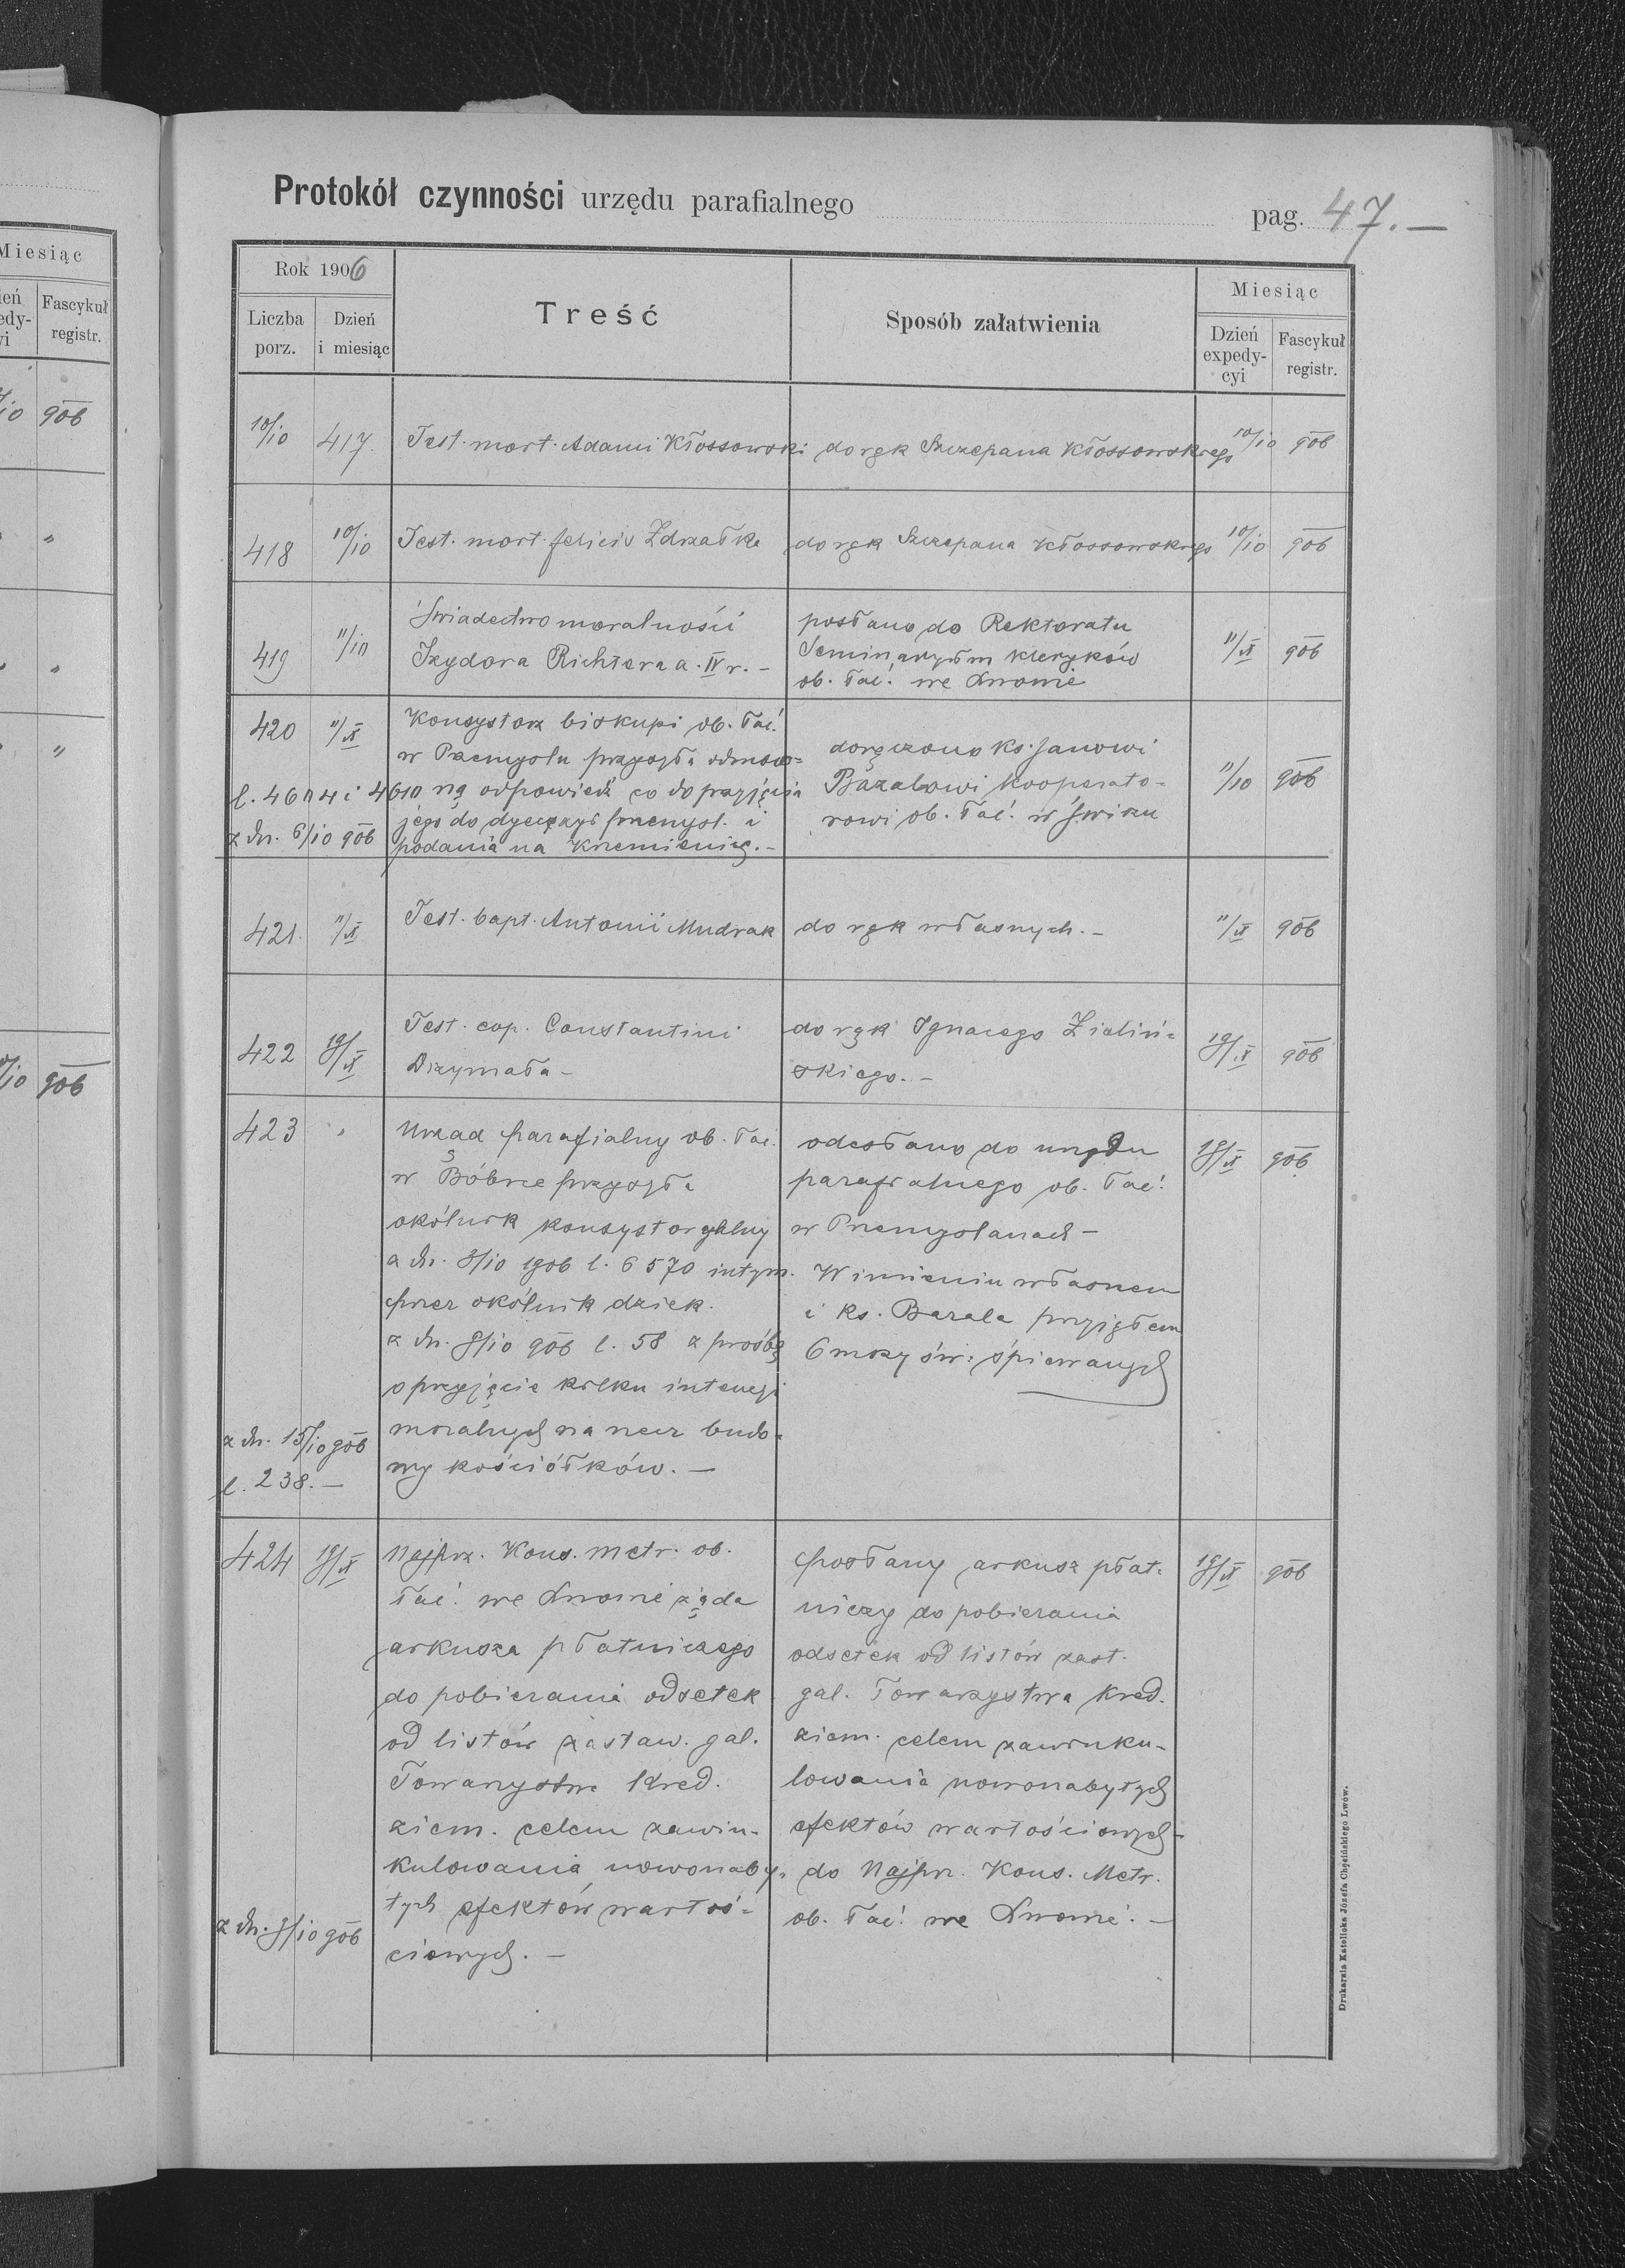 Protokół czynności urzędu parafialnego pag. 47.—
Rok 1906
Liczba porz.
Dzień i miesiąc
Treść
Sposób załatwienia
Miesiąc
Dzień expedy-
cyi
Fascykuł
registr.
10/10 417. Test. mort. Adami Kłossowski do rąk Szczepana Kłossowskiego 10/10 906
418 10/10 Test. mort. felicis Zdrzałka do rąk Szczepana Kłossowskiego 10/10 906
419 11/10
Świadectwo moralności
Izydora Richtera a. IV r. –
posłano do Rektoratu
Seminaryum kleryków
ob. łac. we Lwowie
11/X 906
420 11/X
l. 4604 i 4610
z dn. 6/10 906
Konsystorz biskupi ob. łac.
w Przemyślu przysyła odmow=
ną odpowiedź co do przyjęcia
jego do dyecezyi przemysl. i
podania na Krzemienicę. –
doręczono ks. Janowi
Bazalowi kooperato-
rowi ob. łać. w Świrzu
11/10 906
421. 11/X Test. bapt. Antonii Mudrak do rąk własnych. – 11/X 906
422 19/X
Test. cop. Constantini
Dizymała –
do rąk Ignacego Zieliń=
skiego. –
19/X 906
423 "
Urząd parafialny ob. łac.
w Bóbrce przysyła
okólnik konsystoryalny
z dn. 3/10 1906 l. 6570 intym.
przez okólnik dziek.
z dn. 8/10 906 l. 58 z prośbą
o przyjęcie kilku intencyi
mszalnych na rzecz budo=
wy kościółków. —
z dn. 15/10 906
l. 238. —
odesłano do urzędu
parafialnego ob. łać.
w Przemyślanach –
W imieniu własnem
i ks. Bazala przyjąłem
6 mszy św. śpiewanych
19/X 906
424 19/X
Najprz. Kons. metr. ob.
łać. we Lwowie żąda
arkusza płatniczego
do pobierania odsetek
od listów zastaw. gal.
Towarzystwa Kred.
ziem. celem zawin-
kulowania nowonaby-
tych efektów wartoś=
ciowych. —
z dn. 9/10 906
posłany arkusz płat=
niczy do pobierania
odsetek od listów zast.
gal. Towarzystwa Kred.
ziem. celem zawinku-
lowania nowonabytych
efektów wartościowych
do Najprz. Kons. Metr.
ob. łać. we Lwowie. —
19/X 906
Drukarnia Katolicka Józefa Chęcińskiego Lwów.
Miesiąc
Fascykuł
registr.
906
906